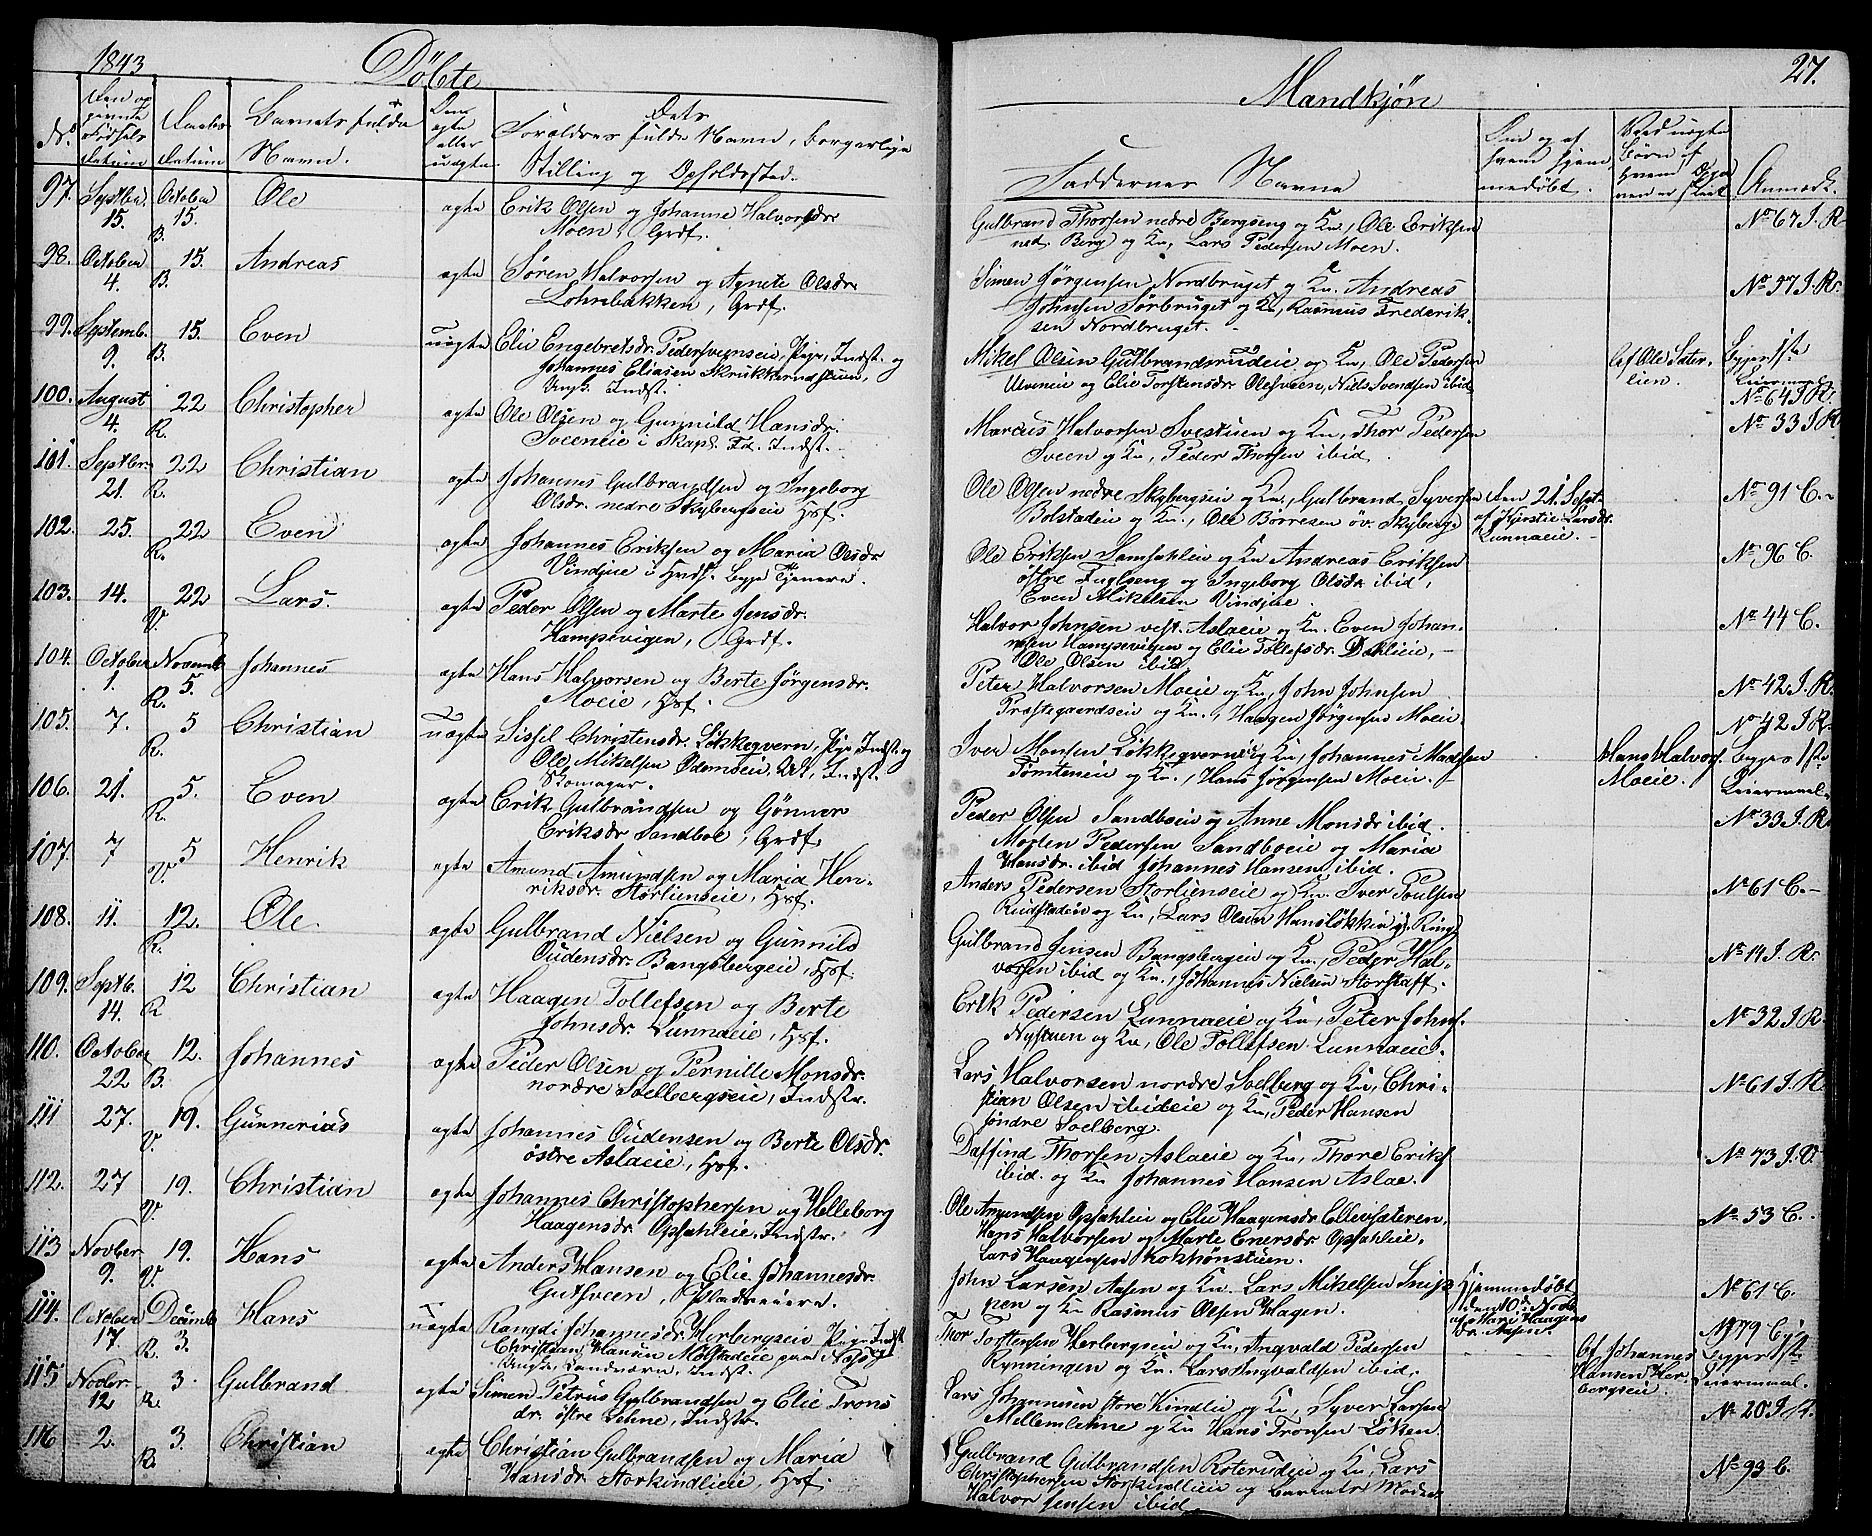 1843
Döbte
Mandkjön
27.
No. Den op givne Födsels Datum
Daabs Datum
Barnets fulde Navn.
Om ægte eller uægte.
Dets Forældres fulde Navn, borgerlige Stilling og Opholdssted.
Faddernes Navne
Om og af hvem hjemmedöbt.
Ved uægte Börn af hvem Opgivelsen er skeet
Anmærk.
97. Septber 15. B. October 15. Ole ægte Erik Olsen og Johanne Halvorsdr. Moen, Grdf.
Gulbrand Thorsen nedre Bergseng og Kn., Ole Eriksen ned. Berg og Kn, Lars Pedersen Moen.
No 67 J. R.
98. October 4. B. 15. Andreas ægte Sören Halvorsen og Agnete Olsdr. Lohnebakken, Grdf.
Simen Jörgensen Nordbruget og K. Andreas Johnsen Sörbruget og Kn, Rasmus Frederiksen Nordbruget.
No 97 J. R.
99. Septemb. 9. B. 15. Even uægte Elie Engebretsdr. Pedersveenseie, Pige, Indst. og Johannes Eliasen Skrukkerudstuen, Ungk. Indst.
Mikel Olsen Gulbrandsrudeie og Kn, Ole Pedersen Ulveneie og Elie Torstensdr. Olesveen, Nils Svendsen ibid.
Af Ole Sæterlien.
Begges 1ste Leiermaal.
No 64 J. R.
100. August 4. R. 22 Christopher ægte Ole Olsen og Gunnild Hansdr. Sveeneie i Skapl. Fd. Indst.
Marcus Halvorsen Svestuen og Kn, Thor Pedersen Sveen og Kn, Peder Thorsen ibid.
No 33 J. R.
101. Septbr. 21. R. 22 Christian ægte Johannes Gulbrandsen og Ingeborg Olsdr. nedre Skybergseie Hsf.
Ole Olsen nedre Skybergseie og Kn., Gulbrand Syversen Bolstadeie og Kn., Ole Börresen öv. Skyberg
Den 21. Sept. af Kjerstie Larsdr. Lunnaeie.
No 91 C.
102. 25. R. 22 Even ægte Johannes Eriksen og Maria Olsdr. Vindjue i Hrds. begge Tjenere.
Ole Eriksen Samsahleie og Kn Andreas Eriksen östre Fuglseng og Ingeborg Olsdr. ibid, Even Mikelsen Vindjue.
No 96 C.
103. 14. V. 22 Lars. ægte Peder Olsen og Marte Jensdr. Hampevigen, Grdf.
Halvor Johnsen vest. Aslaeie og Kn. Even Johannesen Hampevigen og Elie Tollefsdr. Dahlieie, Ole Olsen ibid.
No 44 C.
104. October 1. R. Novemb. 5. Johannes ægte Hans Halvorsen og Berte Jörgensdr. Moeie, Hsf.
Peter Halvorsen Moeie og Kn, John Johnsen Præstegaardseie og Kn., Haagen Jörgensen Moeie.
No 42 J. R.
105. 7. R. 5 Christian uægte Sissel Christensdr. Lökkeqvern, Pige, Indst. og Ole Mikelsen Odemseie. Uk, Indst. Skomager.
Iver Monsen Lökkeqvernsie og Kn, Johannes Madsen Tömteneie og Kn., Hans Jörgensen Moeie.
Hans Halvors. Moeie.
No 42 J. R.
Begges 1ste Leiermaal.
106. 21. R. 5. Even ægte Erik Gulbrandsen og Gönner Eriksdr. Sandboe, Grdf.
Peder Olsen Sandboeie og Anne Monsdr. ibid. Morten Pedersen Sandboeie og Maria Hansdr. ibid Johannes Hansen ibid.
No 33 J. R.
107. 7 V. 5 Henrik ægte Amund Amundsen og Maria Henriksdr. Storlienseie, Hsf.
Anders Pedersen Storlienseie og Kn. Iver Poulsen Rudstadeie og Kn, Lars Olsen Hanslökken i Ring.
No 61 C.
108. 11. R. 12. Ole. ægte Gulbrand Nielsen og Gunnild Oudensdr. Bangsbergeie, Hsf.
Gulbrand Jensen Bangsbergeie og Kn., Peder Halvorsen ibid og Kn., Johannes Nielsen Storstaff.
No 14 J. R.
109. Septb. 14. R. 12 Christian ægte Haagen Tollefsen og Berte Johnsdr. Lunnaeie, Hsf.
Erik Pedersen Lunnaeie og Kn, Peter Johns. Nystuen og Kn, Ole Tollefsen Lunnaeie.
No 32 J. R.
110. October 22 B. 12. Johannes ægte Peder Olsen og Pernille Monsdr. nordre Soelbergseie, Indst.
Lars Halvorsen nordre Soelberg og Kn, Christian Olsen ibideie og Kn, Peder Hansen söndre Soelberg.
No 61 J. R.
111 27. V. 19. Gunnerius ægte Johannes Oudensen og Berte Olsdr. östre Aslaeie, Hsf.
Daffind Thorsen Aslaeie og Kn, Thore Eriks. ibid. og Kn Johannes Hansen Aslae.
No 73 J. V.
112. 27 V. 19. Christian ægte Johannes Christophersen og Helleborg Haagensdr. Opsahleie, Indst.
Ole Amundsen Opsahleie og Elie Haagensdr. Ellevsæteren, Hans Halvorsen og Marte Enersdr. Opsahleie, Lars Haagensen Kokhönstuen.
No 53 C.
113 Novber 9. V. 19. Hans ægte Anders Hansen og Elie Johannesdr. Gutsveen, Pladseeiere.
John Larsen Aasen og Kn. Lars Mikelsen Snippen og Kn Rasmus Olsen Hagen.
Hjemmedöbt den 10de Novb. af Mari Haagensdr. Aasen.
No 61 C.
114. October 17. R. Decemb. 3. Hans uægte Rangdi Johannesdr. Herbergseie Pige, Indst. Christian Hansen Mölstadeie paa Næs og Ungk. Landværn, Indst.
Thor Torstensen Herbergseie og Kn, Angvald Pedersen Rynningen og Kn. Lars Angvaldsen ibid.
Af Johannes Hansen Herbergseie.
No 79 C. Begges 1ste Leiermaal.
115 Novber 12 R. 3 Gulbrand ægte Simen Petrus Gulbrandsen og Elie Tronsdr. östre Lehne, Indst.
Lars Johannesen Store Kindlie og Kn, Syver Larsen Mellemlehne og Kn Hans Tronsen Löken.
No 20 J. R.
116 2. R. 3. Christian ægte Christian Gulbrandsen og Maria Hansdr. Storkindlieie, Hsf.
Gulbrand Gulbrandsen Roterudeie og Kn, Lars Christophersen Storkindlieie og Barnets Moder, Halvor Jensen ibid.
No 93 C.